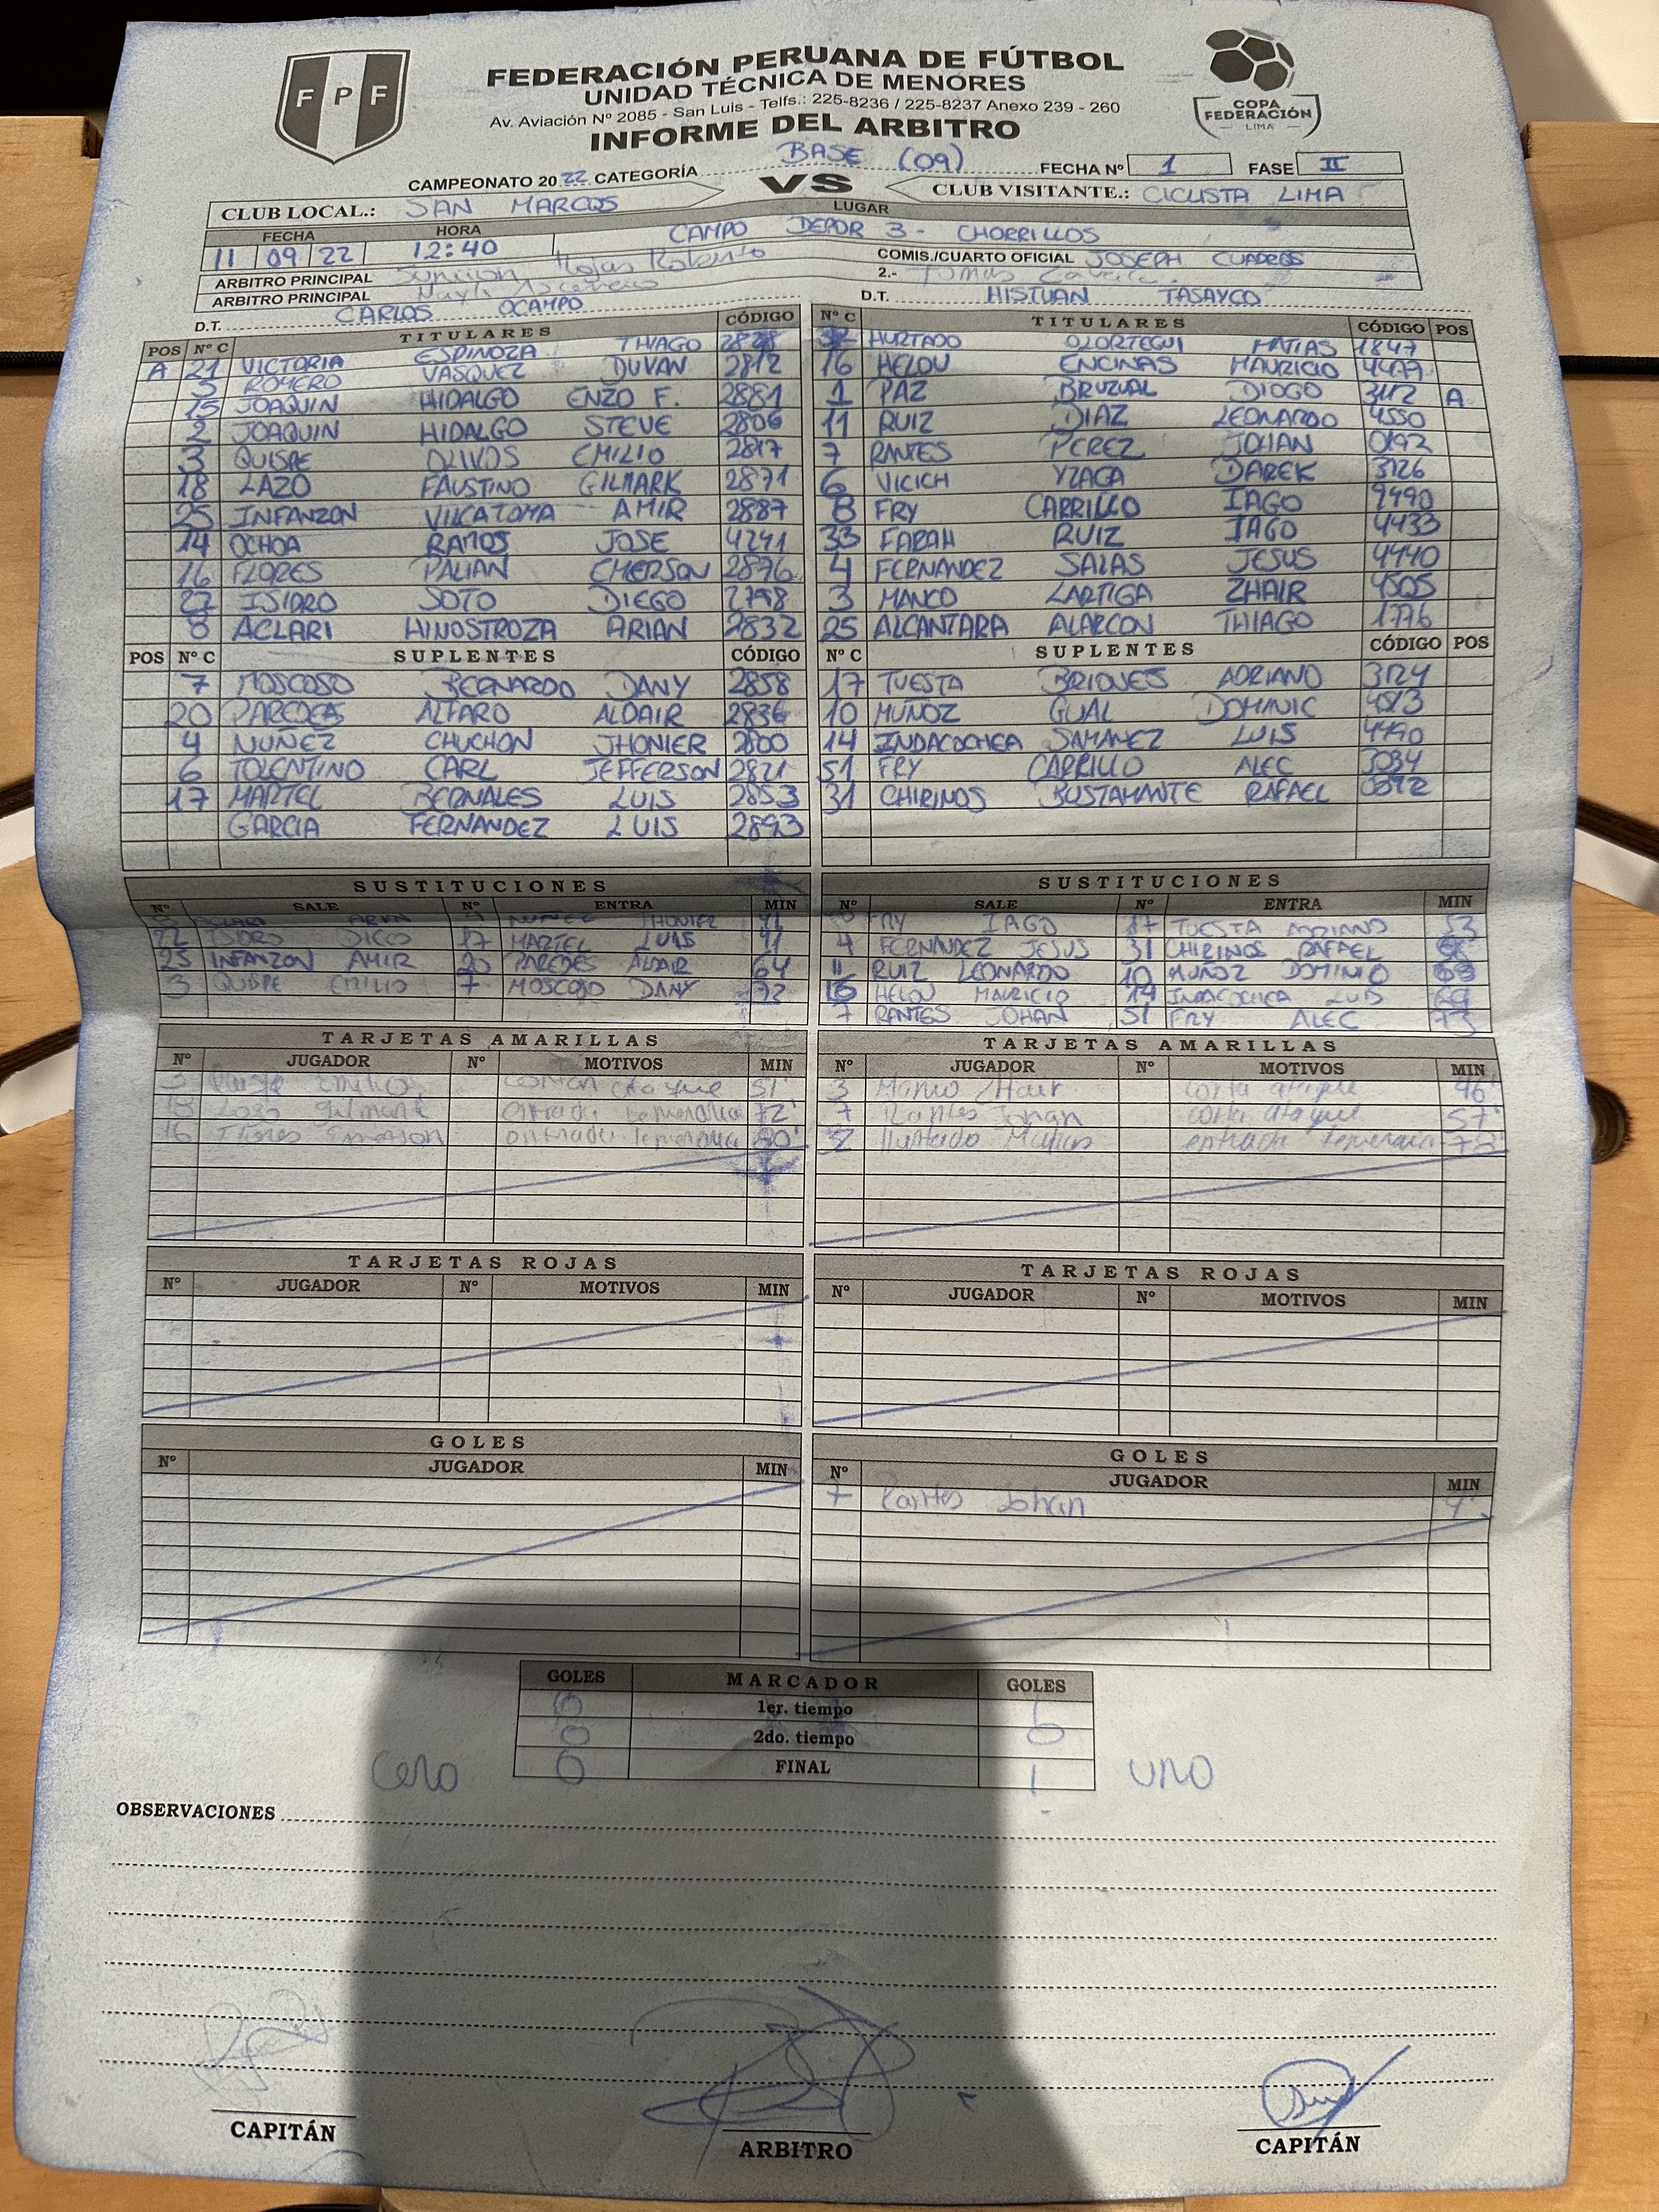 F P F
FEDERACIÓN PERUANA DE FÚTBOL
UNIDAD TÉCNICA DE MENORES
Av. Aviación Nº 2085 - San Luis - Telfs.: 225-8236 / 225-8237 Anexo 239 - 260
INFORME DEL ARBITRO
COPA
FEDERACIÓN
LIMA
CAMPEONATO 2022 CATEGORÍA BASE (09) FECHA Nº 1 FASE II
CLUB LOCAL.: SAN MARCOS VS CLUB VISITANTE.: CICLISTA LIMA
FECHA HORA LUGAR
11 09 22 12:40 CAMPO DEPOR 3 - CHORRILLOS
ARBITRO PRINCIPAL Rojas Roberto COMIS./CUARTO OFICIAL JOSEPH CUADROS
ARBITRO PRINCIPAL 2.- Tomas
D.T. CARLOS OCAMPO D.T. HISTUAN TASAYCO
POS Nº C TITULARES CÓDIGO
A 21 VICTORIA ESPINOZA THIAGO
5 ROMERO VASQUEZ DUVAN 2812
15 JOAQUIN HIDALGO ENZO F. 2881
2 JOAQUIN HIDALGO STEVE 2806
3 QUISPE OLIVOS EMILIO 2817
18 LAZO FAUSTINO GILMARK 2871
25 INFANZON VILCATOMA AMIR 2887
14 OCHOA RAMOS JOSE 4241
16 FLORES PALIAN EMERSON 2876
22 ISIDRO SOTO DIEGO 2798
8 ACLARI HINOSTROZA ARIAN 2832
POS Nº C SUPLENTES CÓDIGO
7 MOSCOSO BERNARDO DANY 2858
20 PAREDES ALFARO ALDAIR 2836
4 NUÑEZ CHUCHON JHONIER 2800
6 TOLENTINO CARL JEFFERSON 2821
17 MARTEL BERNALES LUIS 2853
GARCIA FERNANDEZ LUIS 2893
Nº C TITULARES CÓDIGO POS
HURTADO OLORTEGUI MATIAS 1847
16 HELOU ENCINAS MAURICIO 4477
1 PAZ BRUZUAL DIOGO 3112 A
11 RUIZ DIAZ LEONARDO 4550
7 RANTES PEREZ JOHAN 0192
6 VICICH YZAGA DAREK 3126
8 FRY CARRILLO IAGO 9490
33 FARAH RUIZ IAGO 4433
4 FERNANDEZ SALAS JESUS 4440
3 MANCO LARTIGA ZHAIR 4505
25 ALCANTARA ALARCON THIAGO 1776
Nº C SUPLENTES CÓDIGO POS
17 TUESTA BRIONES ADRIANO 3124
10 MUÑOZ GUAL DOMINIC 4813
14 INDACOCHEA SAMANEZ LUIS 4490
51 FRY CARRILLO ALEC 3094
31 CHIRINOS BUSTAMANTE RAFAEL 0872
SUSTITUCIONES
Nº SALE Nº ENTRA MIN
8 ACLARI ARIAN 4 NUÑEZ JHONIER 41
22 ISIDRO DIEGO 17 MARTEL LUIS 41
25 INFANZON AMIR 20 PAREDES ALDAIR 64
3 QUISPE EMILIO 7 MOSCOSO DANY 72
SUSTITUCIONES
Nº SALE Nº ENTRA MIN
8 FRY IAGO 17 TUESTA ADRIANO 53
4 FERNANDEZ JESUS 31 CHIRINOS RAFAEL
11 RUIZ LEONARDO 10 MUÑOZ DOMINIC
16 HELOU MAURICIO 14 INDACOCHEA LUIS 69
7 RANTES JOHAN 51 FRY ALEC 73
TARJETAS AMARILLAS
Nº JUGADOR Nº MOTIVOS MIN
3 Quispe Emilio ataque 51'
18 Lazo Gilmark entrada temeraria 72'
16 Flores Emerson entrada temeraria 80'
TARJETAS AMARILLAS
Nº JUGADOR Nº MOTIVOS MIN
3 Manco Zhair corta ataque 46'
7 Rantes Johan corta ataque 57'
Hurtado Matias entrada temeraria 78'
TARJETAS ROJAS
Nº JUGADOR Nº MOTIVOS MIN
TARJETAS ROJAS
Nº JUGADOR Nº MOTIVOS MIN
GOLES
Nº JUGADOR MIN
GOLES
Nº JUGADOR MIN
7 Rantes Johan
GOLES MARCADOR GOLES
0 1er. tiempo
0 2do. tiempo 0
cero 0 FINAL 1 UNO
OBSERVACIONES
CAPITÁN
ARBITRO
CAPITÁN